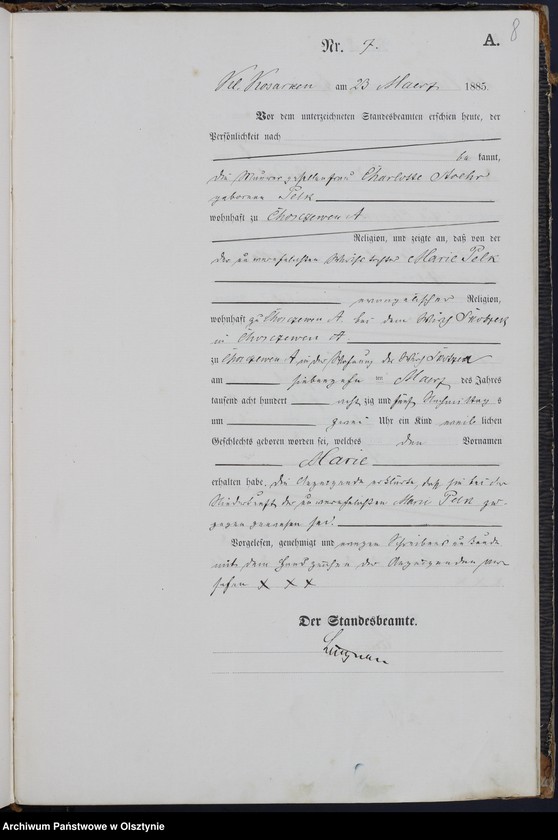 8
A.
Nr. 7.
Kl. Kosarken am 23 Maerz 1885.
Vor dem unterzeichneten Standesbeamten erschien heute, der
Persönlichkeit nach
be kannt,
die Maurergesellenfrau Charlotte
geborene Pelk
wohnhaft zu Chorzewen A
Religion, und zeigte an, daß von der
der unverehelichten Marie Pelk
evangelischer Religion,
wohnhaft zu Chorzewen A. bei dem Wirth
in Chorzewen A
zu Chorzewen A, in der Wohnung des Wirth
am siebenzehn ten Maerz des Jahres
tausend acht hundert acht zig und fünf Nachmittag s
um zwei Uhr ein Kind weib lichen
Geschlechts geboren worden sei, welches den Vornamen
Marie
erhalten habe. Die Anzeigende erklärte, daß sie bei der
Niederkunft der unverehelichten Marie Pelk zu-
gegen gewesen sei.
Vorgelesen, genehmigt und wegen Schreibensunkunde
mit dem Handzeichen der Anzeigenden ver-
sehen x x x
Der Standesbeamte.
Archiwum Państwowe w Olsztynie